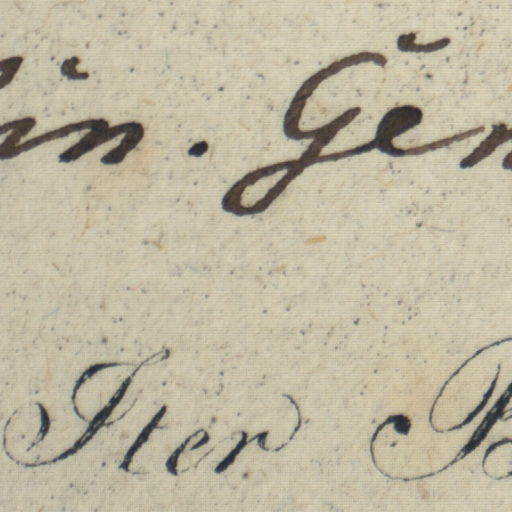 in. Gen
Iter B